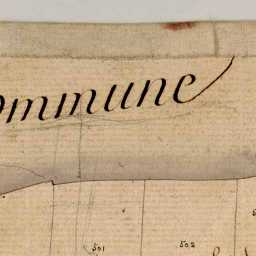 ommune
501 502